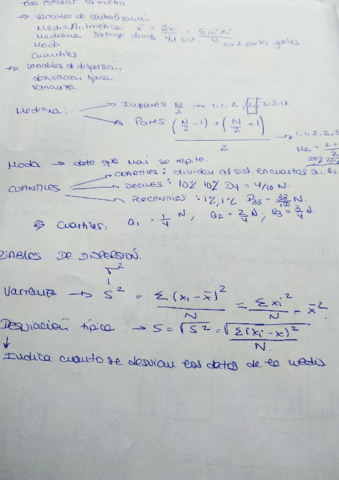 → Variables de centralización
Media Aritmética x̄ = Σxi / N = Σni·xi / N
Mediana
Moda
Cuantiles
→ Variables de dispersión
desviación típica
Varianza
Mediana: → Impares N/2 → 1, 1, 2, 2, 3, 3, 4
→ Pares (N/2 - 1) + (N/2 + 1) / 2 → 1, 1, 2, 2, 3
Moda → dato que más se repite.
CUANTILES → CUARTILES: dividen la dist en cuartos Q1, Q2
→ DECILES: 10% 10% D4 = 4/10 N.
→ PERCENTILES: 1%, 1%
Cuartiles: Q1 = 1/4 N, Q2 = 2/4 N, Q3 = 3/4 N.
DE DISPERSIÓN.
σ²
Varianza → S² = Σ(xi - x̄)² / N = Σxi² / N - x̄²
Desviación típica → S = √S² = √Σ(xi - x)² / N.
↓
Indica cuanto se desvian los datos de la media